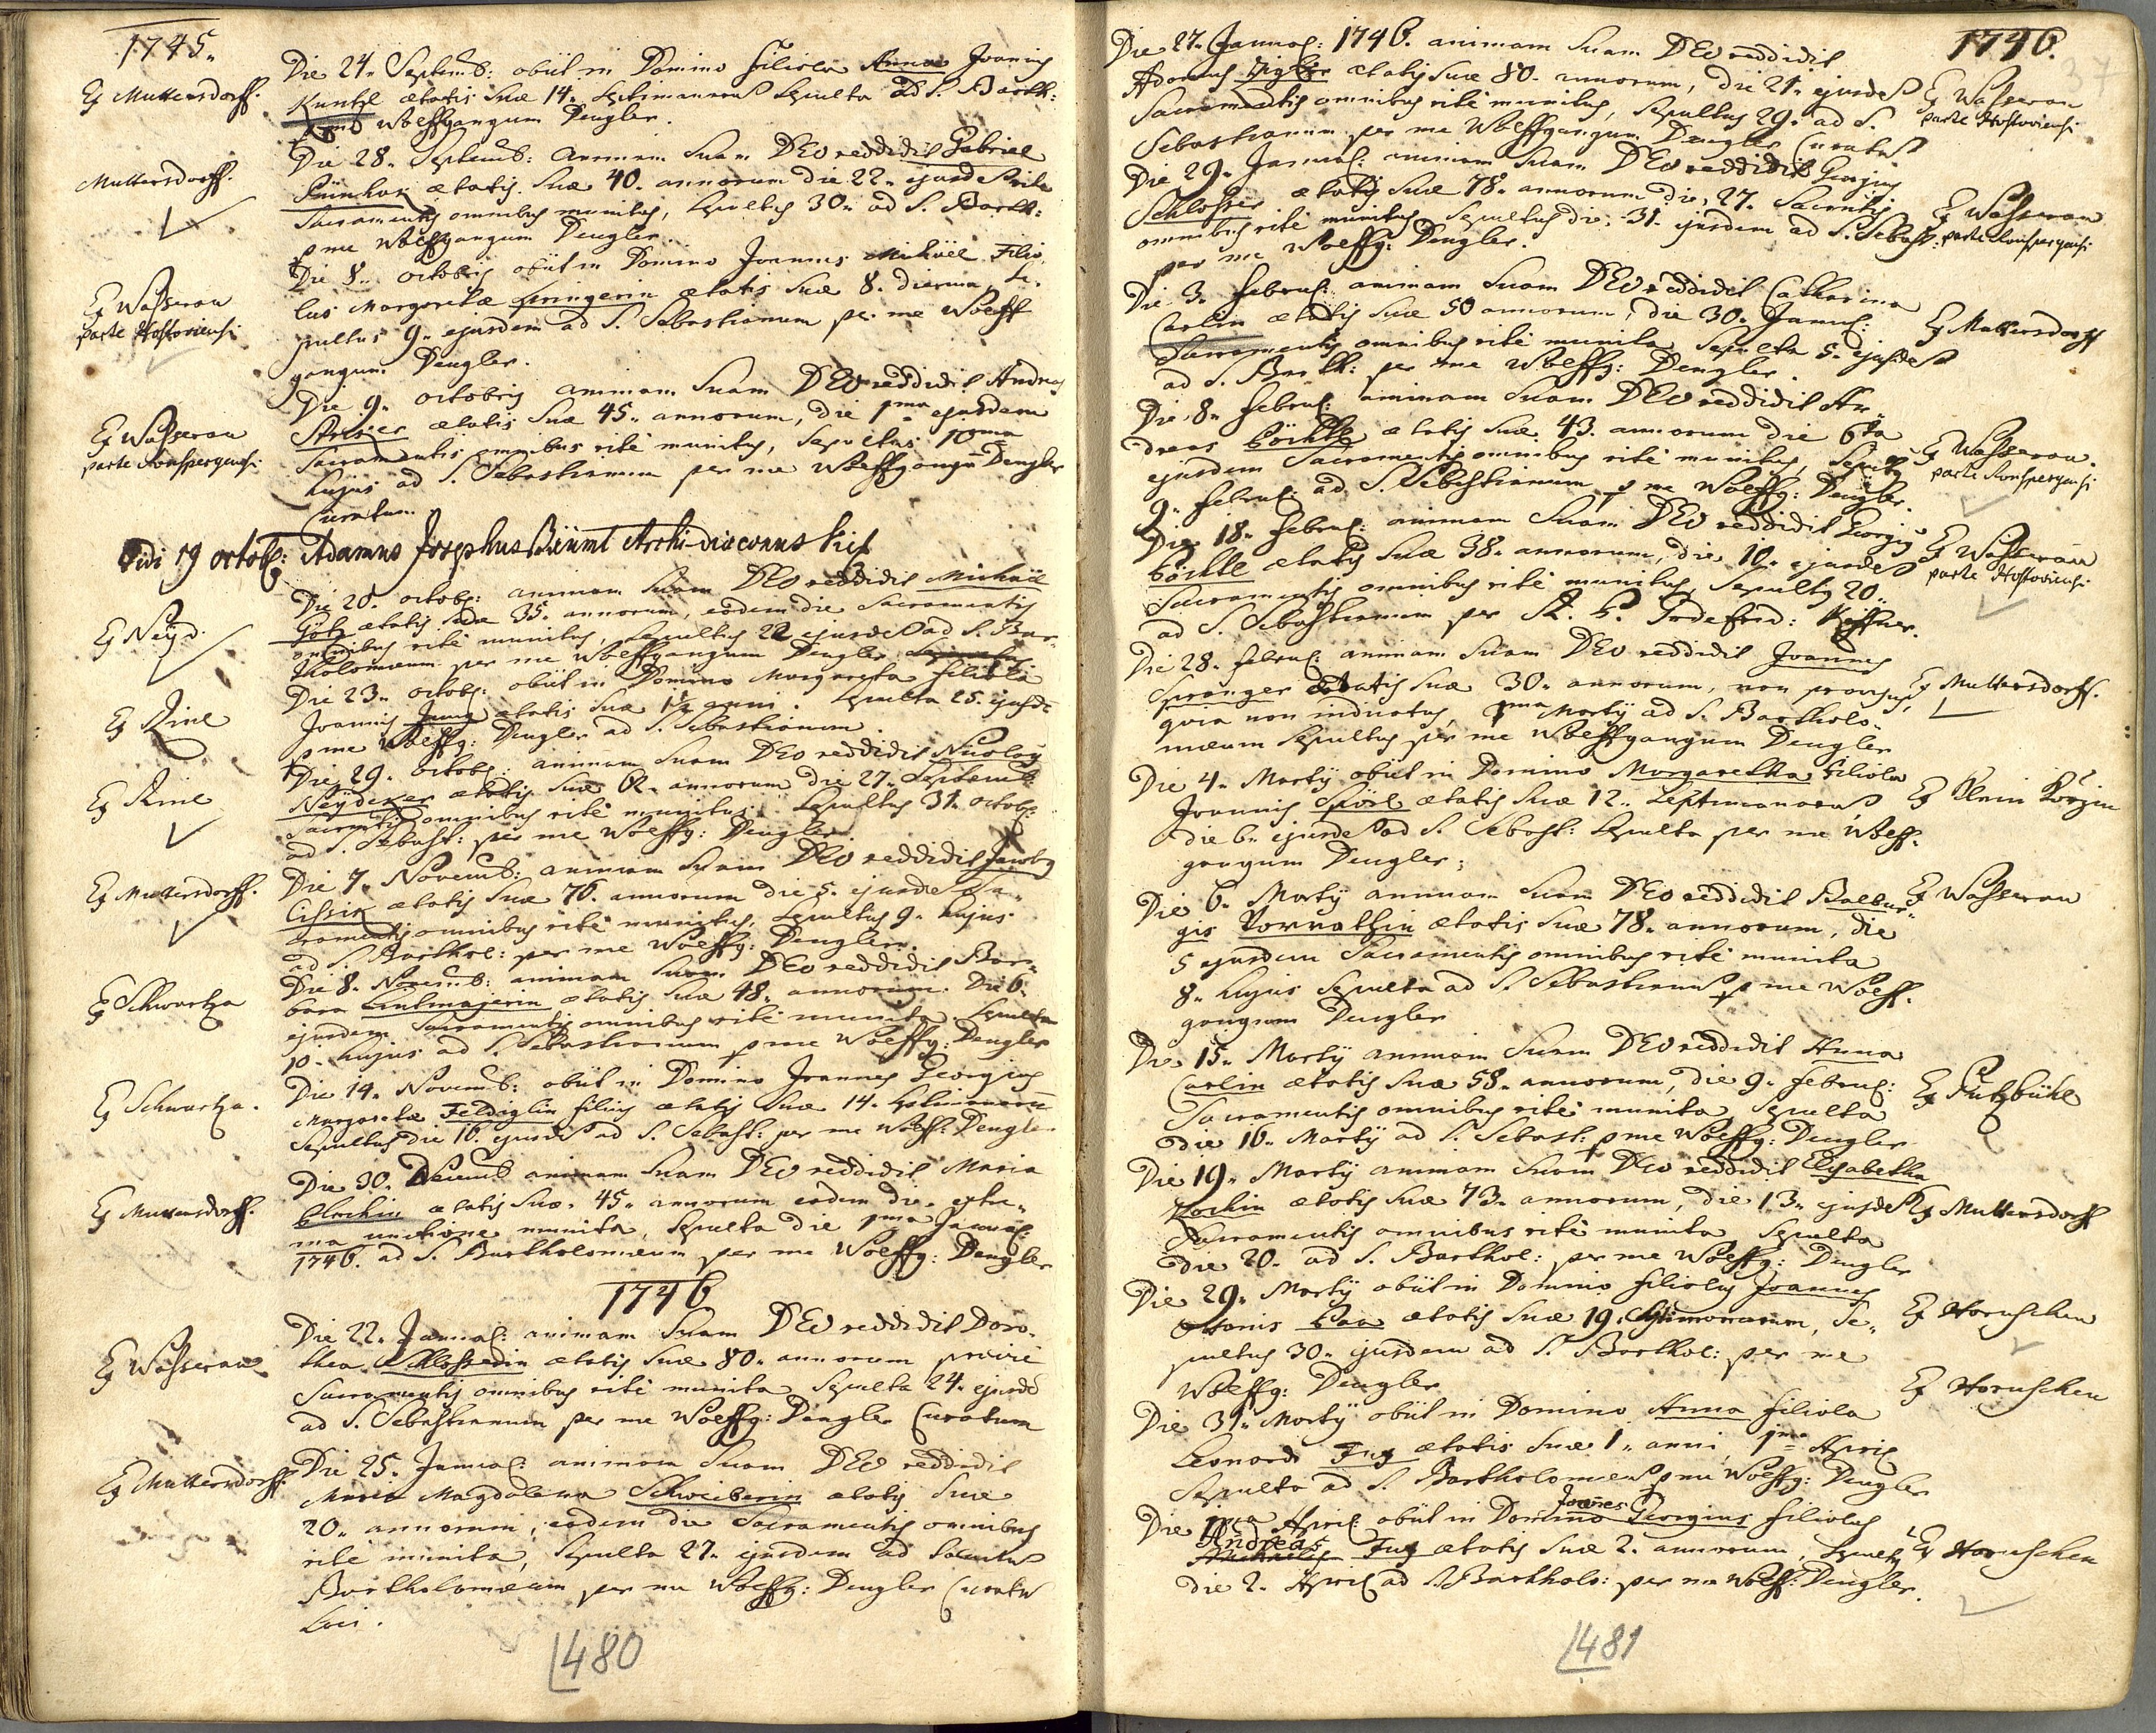 1745.
Ex Muttersdorff.
Die 24. Septemb: obiit in Domino filiola Anna Joannis
Kuntzl ætatis suæ 14. septimanarum sepulta ad S. Barth:
p me Wolffgangum Dengler.
Muttersdorff.
Die 28. Septemb: animam suam DEO reddidit Gabriel
ætatis suæ 40. annorum die 22. ejusdem rite
Sacramentis omnibus munitus, sepultus 30. ad S. Barth:
p me Wolffgangum Dengler.
Ex Wasserau
parte Hostoviensi
Die 8. octobris obiit in Domino Joannes Michäel Filio-
lus Margaretæ Springerin ætatis suæ 8. dierum, se-
pultus 9. ejusdem ad S. Sebastianum per me Wolff
gangum Dengler.
Ex Wasserau
parte Ronspergensi
Die 9. octobris animam suam DEO reddidit Andreas
ætatis suæ 45. annorum, die 1ma ejusdem
Sacramentis omnibus rite munitus, sepultus 10ma
hujus ad S. Sebastianum per me Wolffgangum Dengler
Curatum.
Vidi 19 octob: Adamus Josephus Archi-diaconus
Ex Neÿd.
Die 20. octob: animam suam DEO reddidit Michäel
Götz ætatis suæ 35. annorum, eodem die Sacramentis
omnibus rite munitus, sepultus 22 ejusdem ad S. Bar-
tholomæum per me Wolffgangum Dengler
Ex Zinl
Die 23. octob: obiit in Domino Margareta filiola
Joannis Jung ætatis suæ 1½ anni. sepulta 25. ejusde
p me Wolffg: Dengler ad S. Sebastianum.
Ex Zinl
Die 29. octob: animam suam DEO reddidit Nicolaus
Neÿdexer ætatis suæ 62. annorum die 27. Septemb
Sacramentis omnibus rite munitus. sepultus 31. octob:
ad S. Sebast: per me Wolffg: Dengler.
Ex Muttersdorff.
Die 7. Novemb: animam suam DEO reddidit Jacobus
ætatis suæ 76. annorum die 5. ejusdem Sa-
cramentis omnibus rite munitus, sepultus 9. hujus
ad S. Barthol: per me Wolffg: Dengler.
Ex Schwartza
Die 8. Novemb: animam suam DEO reddidit Bar-
bara Lintmajerin ætatis suæ 48. annorum. Die 6.
ejusdem Sacramentis omnibus rite munita sepulta
10. hujus ad S. Sebastianum p me Wolffg: Dengler
Ex Schwartza.
Die 14. Novemb: obiit in Domino Joannes Georgius
Margaretæ Feldiglin filius ætatis suæ 14. septimanaru
sepultus die 16. ejusdem ad S. Sebast: per me Wolff: Dengler
Ex Muttersdorff.
Die 30. Decemb animam suam DEO reddidit Maria
Blochin ætatis suæ. 45. annorum eodem die extre-
ma unctione munita, sepulta die 1ma Januar:
1746. ad S. Bartholomæum per me Wolffg: Dengler
1746
Ex Wasserau
Die 22. Januar: animam suam DEO reddidit Doro-
thea Schlosserin ætatis suæ 80. annorum pridie
Sacramentis omnibus rite munita sepulta 24. ejusde
ad S. Sebastianum per me Wolffg: Dengler Curatum
Ex Muttersdorff.
Die 25. Januar: animam suam DEO reddidit
Maria Magdalena Schreiberin ætatis suæ
20. annorum, eodem die Sacramentis omnibus
rite munita, sepulta 27. ejusdem ad Sanctum
Bartholomæum per me Wolffg: Dengler Curatu
Loci.
480
1746.
37
Die 27. Januar: 1746. animam suam DEO reddidit
Adamus Zigler ætatis suæ 80. annorum, die 21. ejusdem
Sacramentis omnibus rite munitus, sepultus 29. ad S.
Sebastianum per me Wolffgangum Dengler Curatum
Ex Wasserau
parte Hostoviensi
Die 29. Januar: animam suam DEO reddidit Georgius
Schlosser ætatis suæ 78. annorum die 27. Sacrmentis
omnibus rite munitus sepultus die 31. ejusdem ad S. Sebast:
per me Wolffg: Dengler.
Ex Wasserau
parte Ronspergensi
Die 3. Februar: animam suam DEO reddidit Catharina
Carlin ætatis suæ 50 annorum, die 30. Januar:
Sacramentis omnibus rite munita sepulta 5. ejusdem
ad S. Barth: per me Wolffg: Dengler.
Ex Muttersdorff
Die 8. Februar: animam suam DEO reddidit An-
dreas ætatis suæ 43. annorum die 6ta
ejusdem Sacramentis omnibus rite munitus, sepultus
9. Februar: ad S. Sebastianum p me Wolffg: Dengler.
Ex Wasserau.
parte Ronspergensi
Die 18. Februar: animam suam DEO reddidit Georgius
ætatis suæ 38. annorum, die 10. ejusdem
Sacramentis omnibus rite munitus, sepultus 20.
ad S. Sebastianum per R. P. Godefrid:
Ex Wasserau
parte Hostoviensi
Die 28. Februar: animam suam DEO reddidit Joannes
Sprenger ætatis suæ 30. annorum, non provisus,
quia non indicatus, 1ma Martÿ ad S. Bartholo-
mæum sepultus per me Wolffgangum Dengler
Ex Muttersdorff.
Die 4. Martÿ obiit in Domino Margaretha filiola
Joannis ætatis suæ 12. septimanarum
die 6. ejusdem ad S. Sebast: sepulta per me Wolff-
gangum Dengler.
Ex Klein
Die 6. Martÿ animam suam DEO reddidit Balbur-
gis Vorrathin ætatis suæ 78. annorum, die
5 ejusdem Sacramentis omnibus rite munita
8. hujus sepulta ad S. Sebastianum p me Wolff-
gangum Dengler
Ex Wasserau
Die 15. Martÿ animam suam DEO reddidit Anna
Carlin ætatis suæ 58. annorum, die 9. Februar:
Sacramentis omnibus rite munita sepulta
die 16. Martÿ ad S. Sebast: p me Wolffg: Dengler
Ex Putzbühl
Die 19. Martÿ animam suam DEO reddidit Elisabetha
Zochin ætatis suæ 73. annorum, die 13. ejusdem
Sacramentis omnibus rite munita sepulta
die 20. ad S. Barthol: per me Wolffg: Dengler
Ex Muttersdorff
Die 29. Martÿ obiit in Domino filiolus Joannes
ætatis suæ 19. septimanarum, se-
pultus 30. ejusdem ad S. Barthol: per me
Wolffg: Dengler
Ex Horuschen
Die 31. Martÿ obiit in Domino Anna filiola
Leonardi Fux ætatis suæ 1. anni, 1ma April
sepulta ad S. Bartholomæum p me Wolffg: Dengler
Ex Horuschen
Die 1ma April: obiit in Domino Joannes Georgius filiolus
Andreas
Fux ætatis suæ 2. annorum, sepultus
die 2. April: ad S. Bartholo: per me Wolff: Dengler.
Ex Horuschen
481